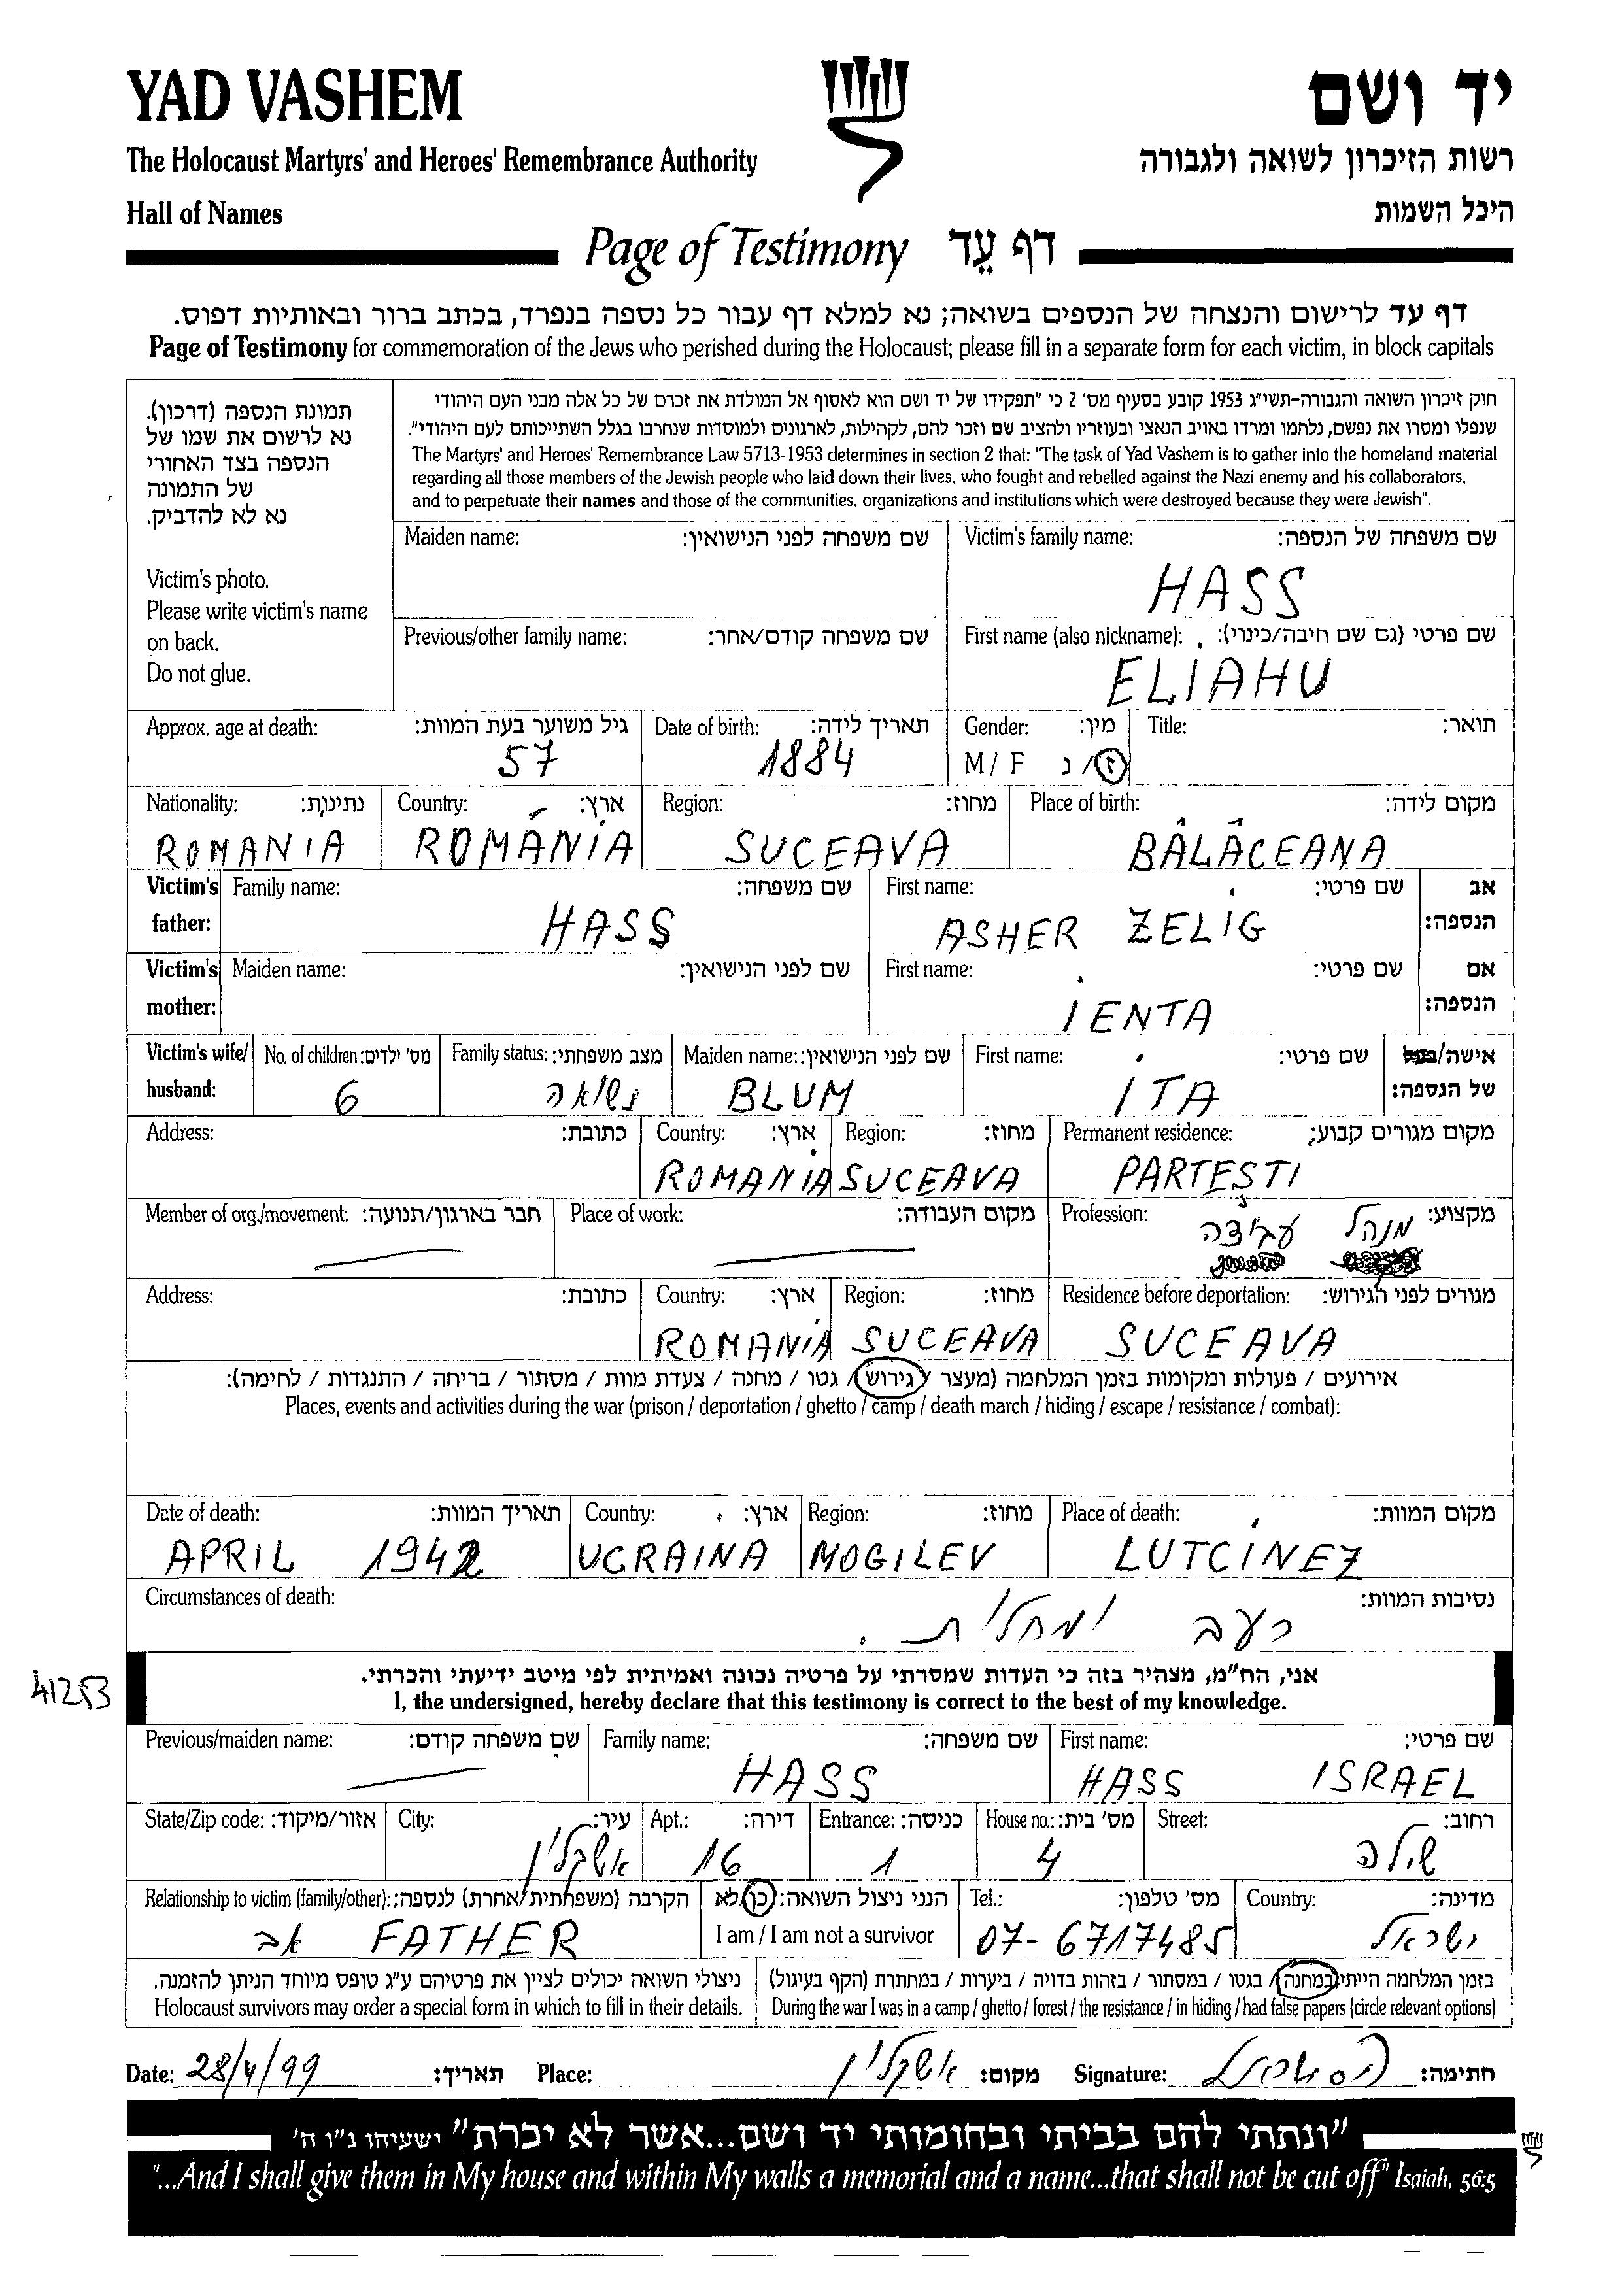 YAD VASHEM
יד ושם
The Holocaust Martyrs' and Heroes' Remembrance Authority
רשות הזיכרון לשואה ולגבורה
Hall of Names
היכל השמות
Page of Testimony דף עֵד
דף עד לרישום והנצחה של הנספים בשואה; נא למלא דף עבור כל נספה בנפרד, בכתב ברור ובאותיות דפוס.
Page of Testimony for commemoration of the Jews who perished during the Holocaust; please fill in a separate form for each victim, in block capitals
תמונת הנספה (דרכון).
נא לרשום את שמו של
הנספה בצד האחורי
של התמונה
נא לא להדביק.
Victim's photo.
Please write victim's name
on back.
Do not glue.
חוק זיכרון השואה והגבורה-תשי"ג 1953 קובע בסעיף מס' 2 כי "תפקידו של יד ושם הוא לאסוף אל המולדת את זכרם של כל אלה מבני העם היהודי
שנפלו ומסרו את נפשם, נלחמו ומרדו באויב הנאצי ובעוזריו ולהציב שם וזכר להם, לקהילות, לארגונים ולמוסדות שנחרבו בגלל השתייכותם לעם היהודי".
The Martyrs' and Heroes' Remembrance Law 5713-1953 determines in section 2 that: "The task of Yad Vashem is to gather into the homeland material
regarding all those members of the Jewish people who laid down their lives, who fought and rebelled against the Nazi enemy and his collaborators,
and to perpetuate their names and those of the communities, organizations and institutions which were destroyed because they were Jewish".
Maiden name: שם משפחה לפני הנישואין:
Victim's family name: שם משפחה של הנספה:
HASS
Previous/other family name: שם משפחה קודם/אחר:
First name (also nickname): שם פרטי (גם שם חיבה/כינוי):
ELIAHU
Approx. age at death: גיל משוער בעת המוות:
57
Date of birth: תאריך לידה:
1884
Gender: מין:
M / F ז / נ
Title: תואר:
Nationality: נתינות:
ROMANIA
Country: ארץ:
ROMÂNIA
Region: מחוז:
SUCEAVA
Place of birth: מקום לידה:
BÂLÂCEANA
Victim's father: אב הנספה:
Family name: שם משפחה:
HASS
First name: שם פרטי:
ASHER ZELIG
Victim's mother: אם הנספה:
Maiden name: שם לפני הנישואין:
First name: שם פרטי:
IENTA
Victim's wife/ husband: אישה/בעל של הנספה:
No. of children: מס' ילדים:
6
Family status: מצב משפחתי:
נשוא ה
Maiden name: שם לפני הנישואין:
BLUM
First name: שם פרטי:
ITA
Address: כתובת:
Country: ארץ:
ROMANIA
Region: מחוז:
SUCEAVA
Permanent residence: מקום מגורים קבוע:
PARTEȘTI
Member of org./movement: חבר בארגון/תנועה:
Place of work: מקום העבודה:
Profession: מקצוע:
מנהל עבודה
Address: כתובת:
Country: ארץ:
ROMANIA
Region: מחוז:
SUCEAVA
Residence before deportation: מגורים לפני הגירוש:
SUCEAVA
אירועים / פעולות ומקומות בזמן המלחמה (מעצר / גירוש / גטו / מחנה / צעדת מוות / מסתור / בריחה / התנגדות / לחימה):
Places, events and activities during the war (prison / deportation / ghetto / camp / death march / hiding / escape / resistance / combat):
Date of death: תאריך המוות:
APRIL 1942
Country: ארץ:
UCRAINA
Region: מחוז:
MOGILEV
Place of death: מקום המוות:
LUTCINEZ
Circumstances of death: נסיבות המוות:
רעב ומחלות.
41253
אני, הח"מ, מצהיר בזה כי העדות שמסרתי על פרטיה נכונה ואמיתית לפי מיטב ידיעתי והכרתי.
I, the undersigned, hereby declare that this testimony is correct to the best of my knowledge.
Previous/maiden name: שם משפחה קודם:
Family name: שם משפחה:
HASS
First name: שם פרטי:
HASS ISRAEL
State/Zip code: אזור/מיקוד:
City: עיר:
אשקלון
Apt.: דירה:
16
Entrance: כניסה:
1
House no.: מס' בית:
4
Street: רחוב:
שילה
Relationship to victim (family/other): הקרבה (משפחתית/אחרת) לנספה:
אב FATHER
הנני ניצול השואה: כן/לא
I am / I am not a survivor
Tel.: מס' טלפון:
07-6717485
Country: מדינה:
ישראל
ניצולי השואה יכולים לציין את פרטיהם ע"ג טופס מיוחד הניתן להזמנה.
Holocaust survivors may order a special form in which to fill in their details.
בזמן המלחמה הייתי במחנה / בגטו / במסתור / בזהות בדויה / ביערות / במחתרת (הקף בעיגול)
During the war I was in a camp / ghetto / forest / the resistance / in hiding / had false papers (circle relevant options)
Date: 28/4/99 תאריך: Place: אשקלון מקום: Signature: חתימה:
"ונתתי להם בביתי ובחומותי יד ושם...אשר לא יכרת" ישעיהו נ"ו ה'
"...And I shall give them in My house and within My walls a memorial and a name...that shall not be cut off" Isaiah, 56:5